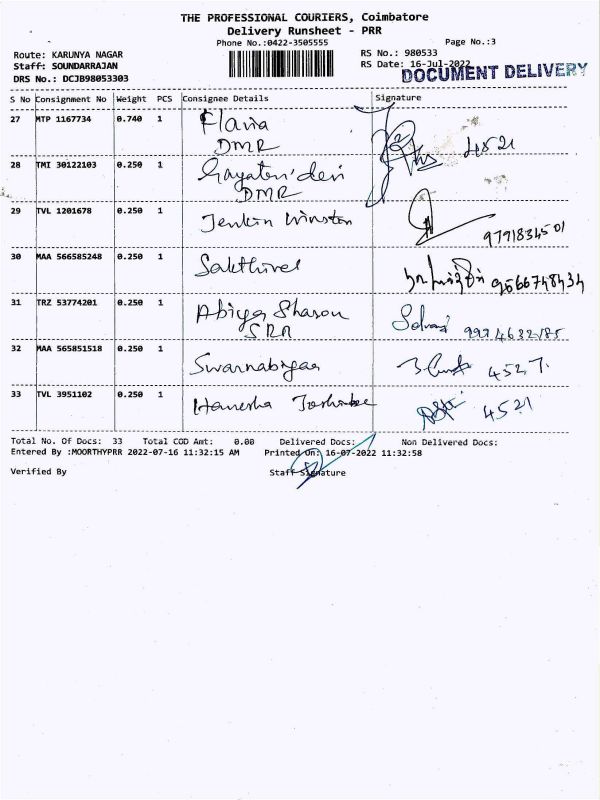 THE PROFESSIONAL COURIERS, Coimbatore
Delivery Runsheet - PRR
Phone No.:0422-3505555 Page No.:3
Route: KARUNYA NAGAR RS No.: 980533
Staff: SOUNDARRAJAN RS Date: 16-Jul-2022
DOCUMENT DELIVERY
DRS No.: DCJB98053303
S No Consignment No Weight PCS Consignee Details Signature
27 MTP 1167734 0.740 1 Flavia
DMR 4521
28 TMI 30122103 0.250 1 Gayatri devi
DMR
29 TVL 1201678 0.250 1 Jenkin Winston
9791834501
30 MAA 566585248 0.250 1 Sakthivel 9566748434
31 TRZ 53774201 0.250 1 Abiya Sharon
SRR
32 MAA 565851518 0.250 1 Swarnabigaa 4527
33 TVL 3951102 0.250 1 Hanesha 4521
Total No. Of Docs: 33 Total COD Amt: 0.00 Delivered Docs: Non Delivered Docs:
Entered By :MOORTHYPRR 2022-07-16 11:32:15 AM Printed On: 16-07-2022 11:32:58
Verified By Staff Signature